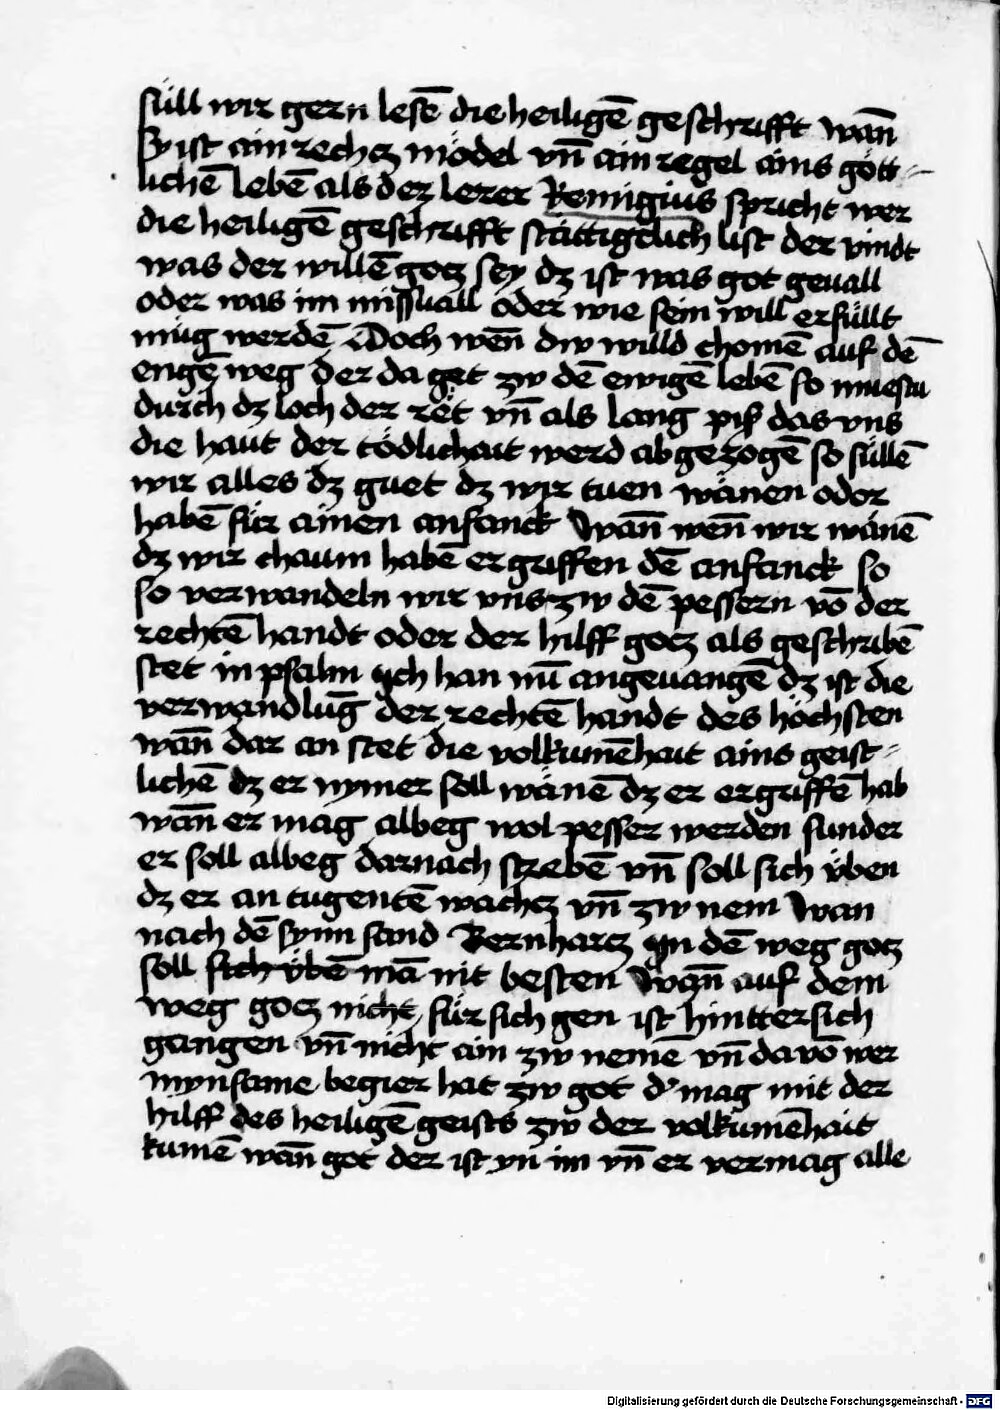 süll wir gern lesē die heiligē geschrifft wañ
Sy ist ain rechcz mödel vn̄ ain regel ains gött-
lichē lebē als der lerer Remigius spricht wer
die heiligē geschrifft stättigclich list der vindt
was der willē gocz sey dz ist was got geuall
oder was im missuall oder wie sein will erfüllt
müg werdē Doch wēn dw willd chomē auf dē
engē weg der da get zw dē ewigē lebē so muestu
durch dz loch der rët vn̄ als lang piß das vns
die haut der tödlichait werd abgezogē so süllē
wir alles dz guet dz wir tuen wänen oder
habē für ainen anfanck Wañ wēn wir wänē
dz wir chaum habē ergriffen dē anfanck so
so verwandeln wir vns zw dē pessern vō der
rechtē handt oder der hilff gocz als geschribē
stet in psalm Ich han nū angeuangē dz ist die
verwandlūg der rechtē handt des höchsten
wañ dar an stet die volkumēhait ains geist-
lichē dz er nymer soll wänē dz er ergriffē hab
wañ er mag albeg wol pesser werden sunder
er soll albeg darnach strebē vn̄ soll sich üben
dz er an tugentē wachcz vn̄ zw nem Wan
nach dē synn sand Bernharcz In dē weg gocz
soll sich übē mā nit besten Wañ auf dem
weg gocz nicht für sich gen ist hintter sich
gangen vn̄ nicht ain zw nemē vn̄ da vō wer
mynsame begier hat zw got d' mag mit der
hilff des heiligē geists zw der volkumēhait
kumē wañ got der ist yn im vn̄ er vermag alle
Digitalisierung gefördert durch die Deutsche Forschungsgemeinschaft - DFG